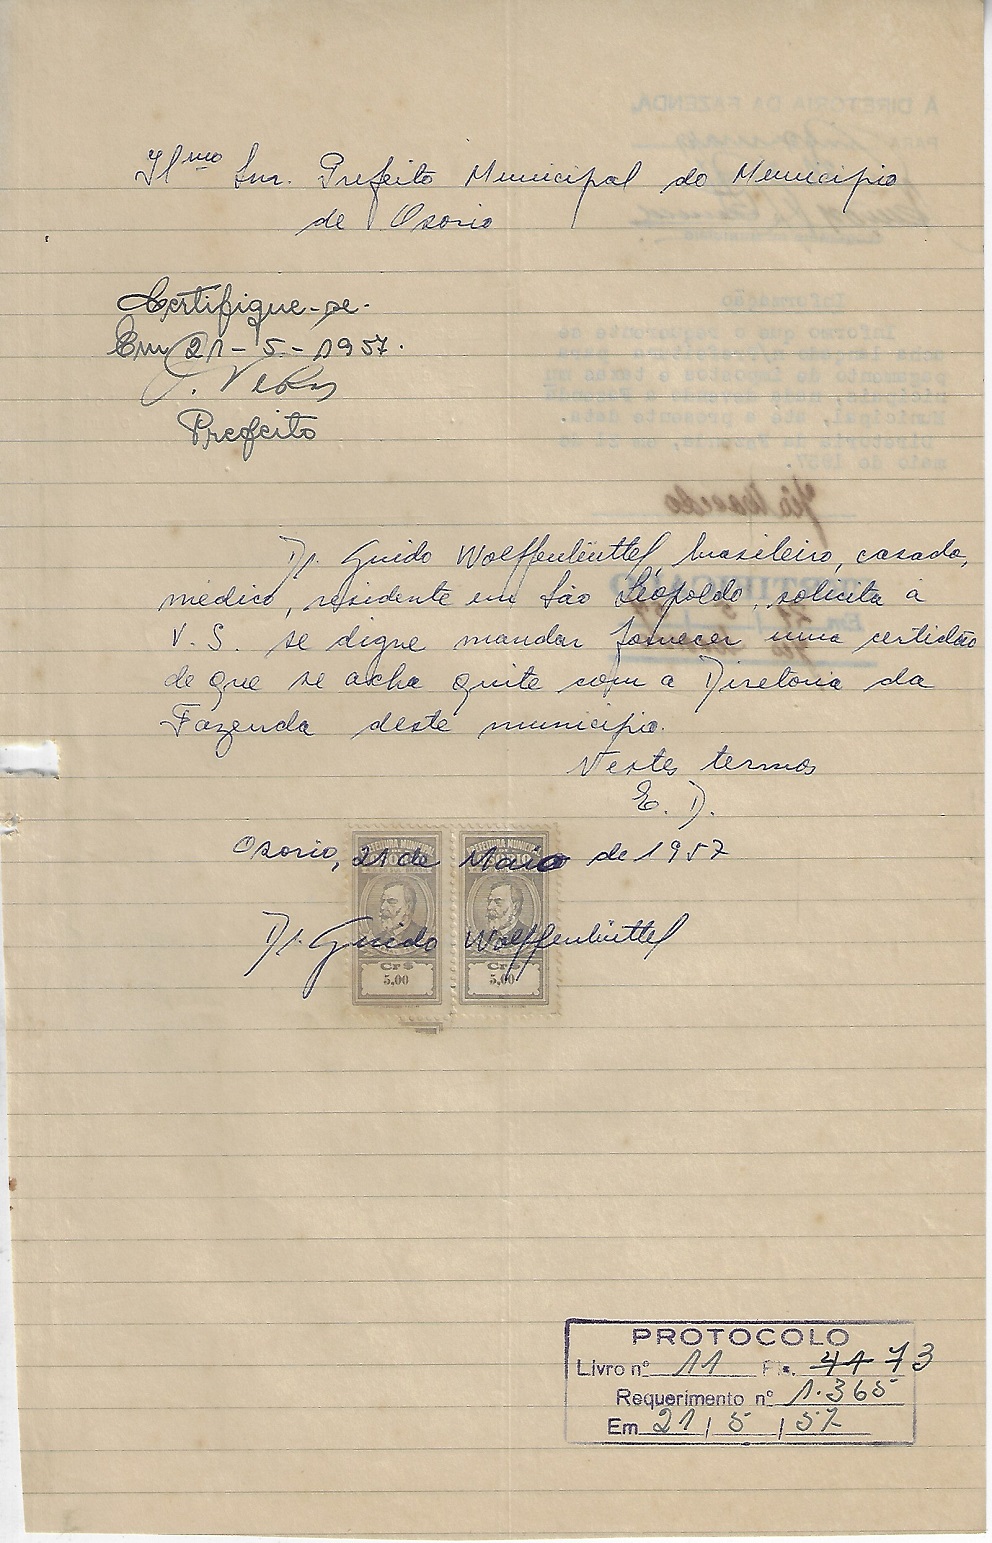 Ilmo Snr. Prefeito Municipal do Municipio
de Osorio
Certifique-se.
Em 21-5-1957.
Prefeito
Dr. Guido Wolffenbüttel brasileiro, casado,
medico, residente em São Léopoldo, solicita a
V. S. se digne mandar fornecer uma certidão
de que se acha quite com a Diretoria da
Fazenda deste municipio.
Nestes termos
E. D.
Osorio, 21 de Maio de 1957
Dr. Guido Wolffenbüttel
PREFEITURA MUNICIPAL
PREFEITURA MUNICIPAL
Cr$
5,00
Cr$
5,00
PROTOCOLO
Livro nº 11 Fls. 73
Requerimento nº 1.365
Em 21/5/57
À DIRETORIA DA FAZENDA.
Informação
Informo que o requerente se
pagamento de impostos e taxas mu
nicipais, nada devendo a Fazenda
Municipal, até a presente data.
Diretoria da Fazenda, em 21 de
maio de 1957.
CERTIFICADO